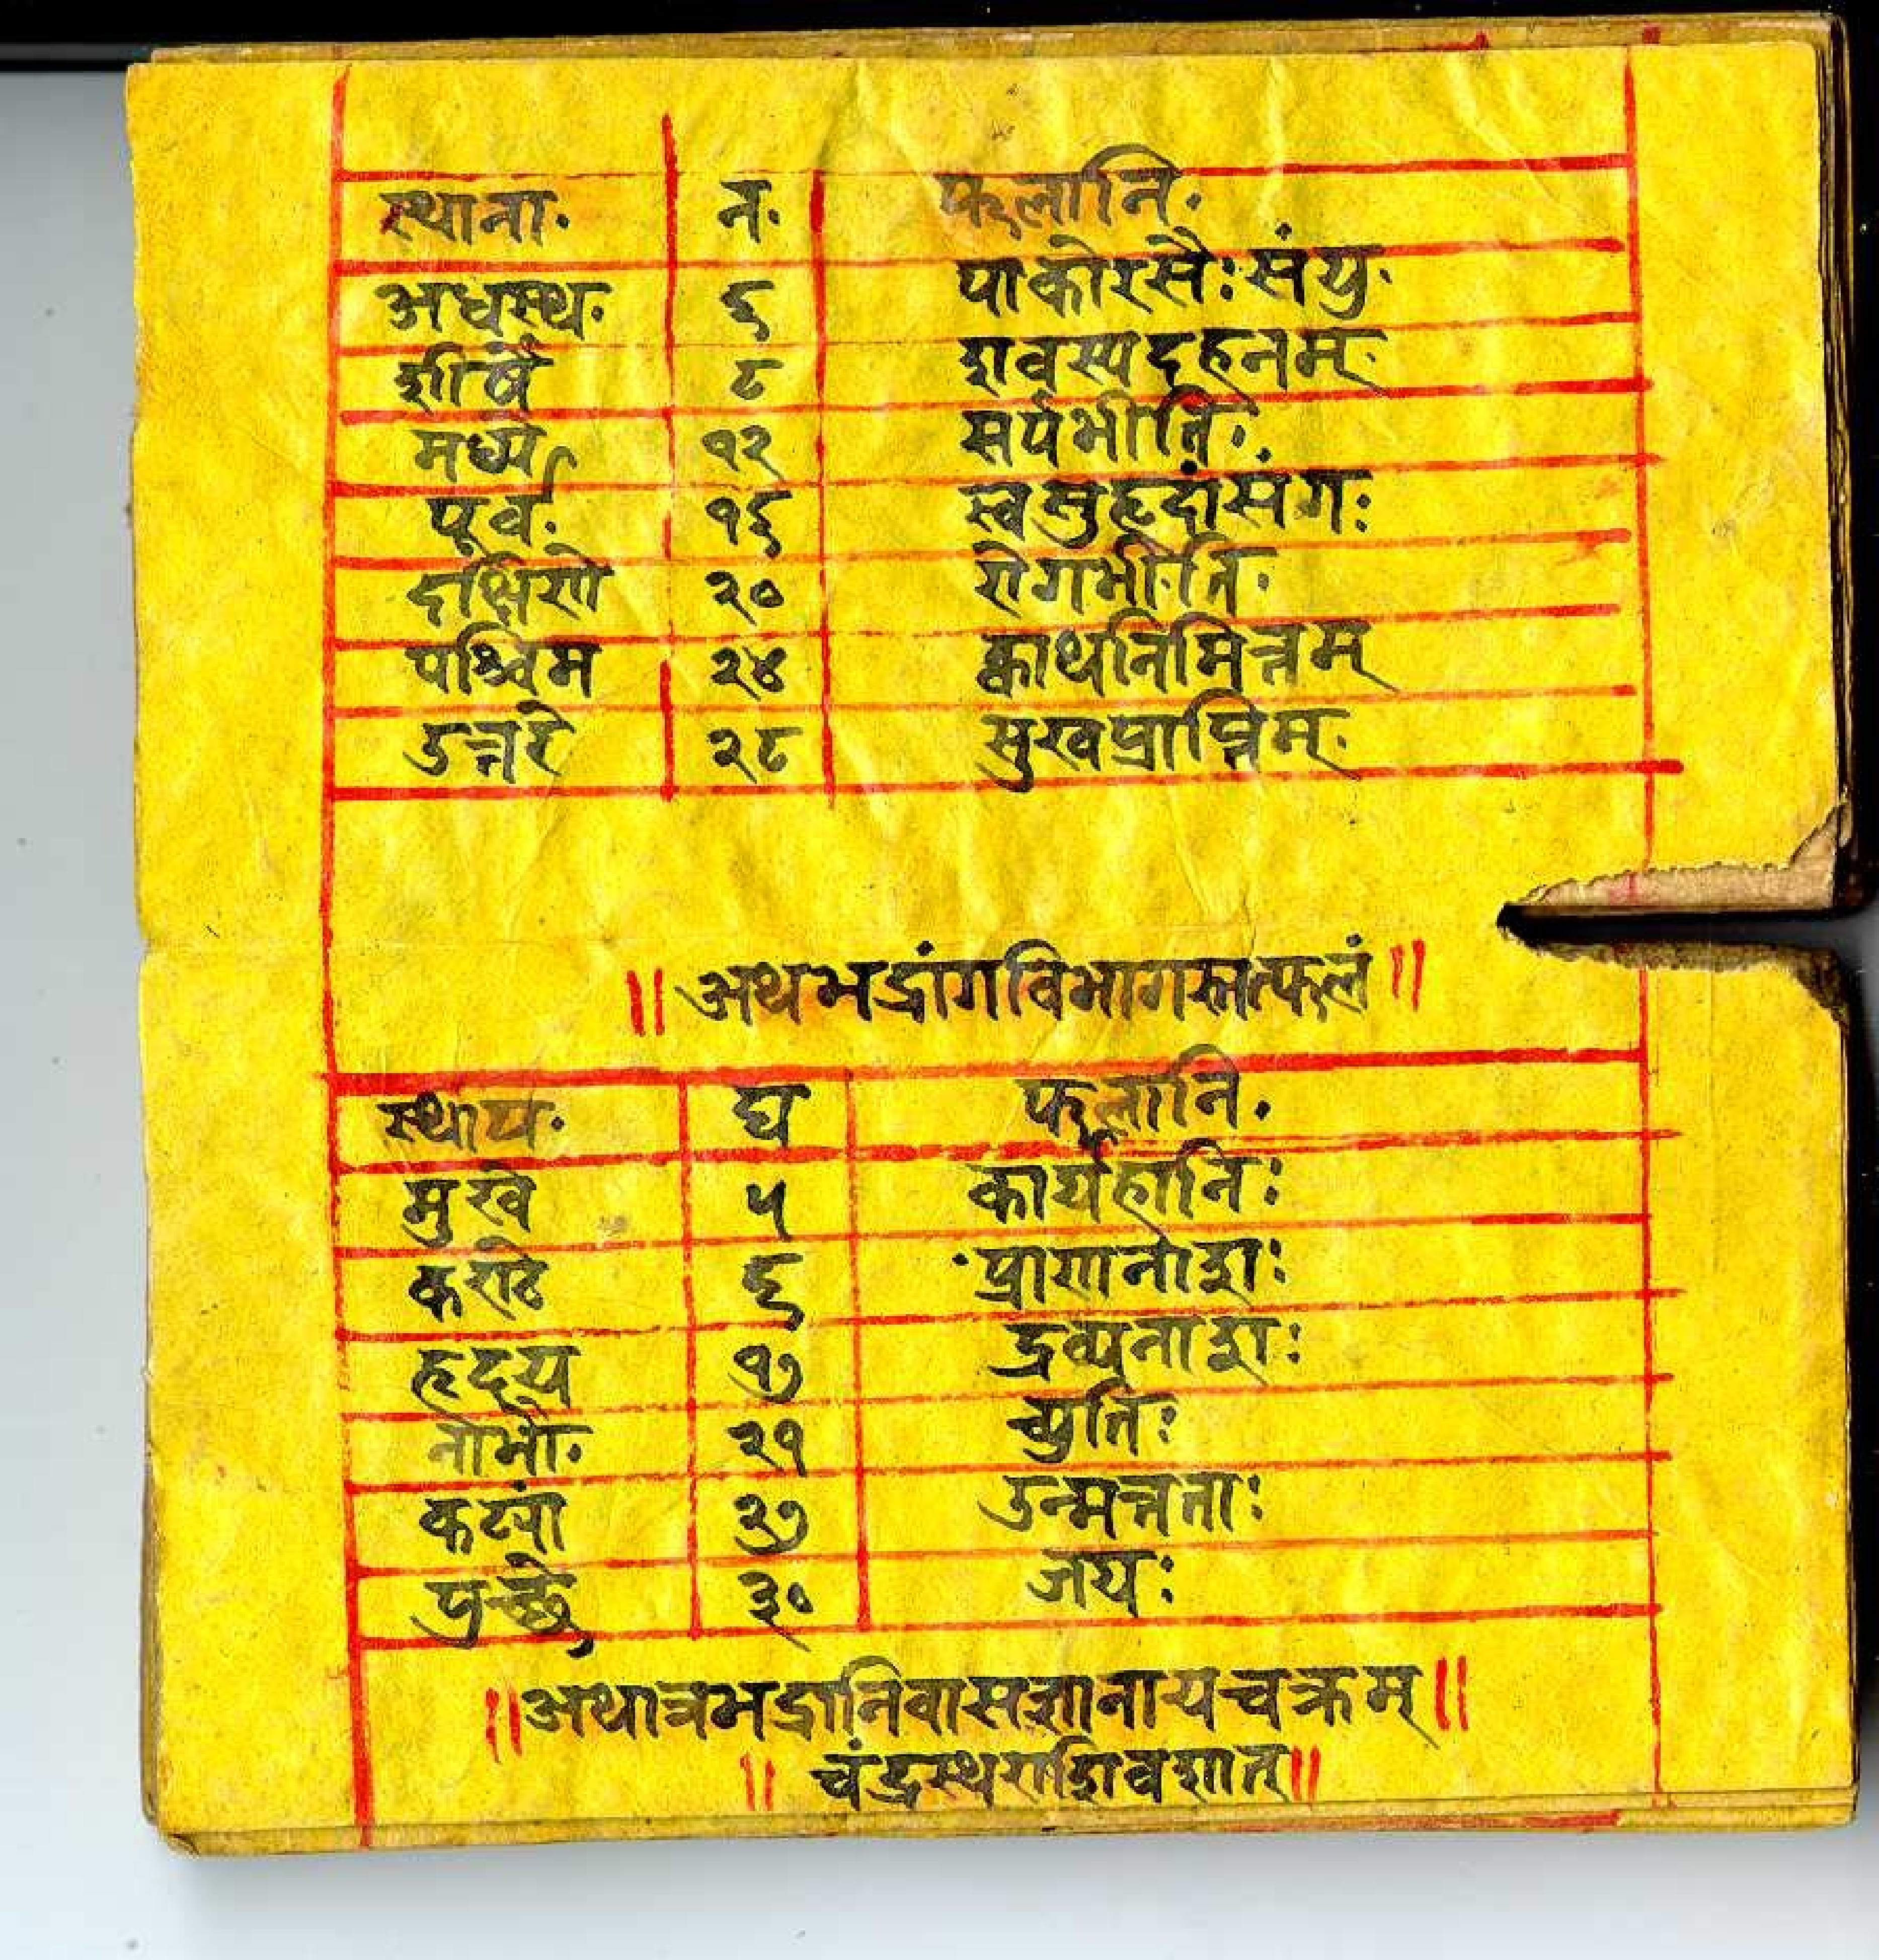 स्थाना· न· फलानि·
अधस्थ· ६ पाकोरसैःसंयु·
शीर्षे ८ शवस्यदहनम्·
मध्ये १२ सर्पभीति·
पूर्व· १६ स्वसुहृदांसंगः
दक्षिणे २० रोगभीति·
पश्चिम २४ क्वाथनिमित्तम्
उत्तरे २८ सुखप्राप्तिम्·
॥ अथभद्रांगविभागस्तत्फलं ॥
स्थाय· घ फलानि·
मुखे ५ कार्यहानिः
कण्ठे ६ प्राणनाशः
हृदय १७ द्रव्यनाशः
नाभौ· २१ च्युतिः
कट्यां २७ उन्मत्तताः
पुच्छे ३० जयः
॥अथात्रभद्रानिवासज्ञानायचक्रम्॥
॥ चंद्रस्थराशिवशात्॥